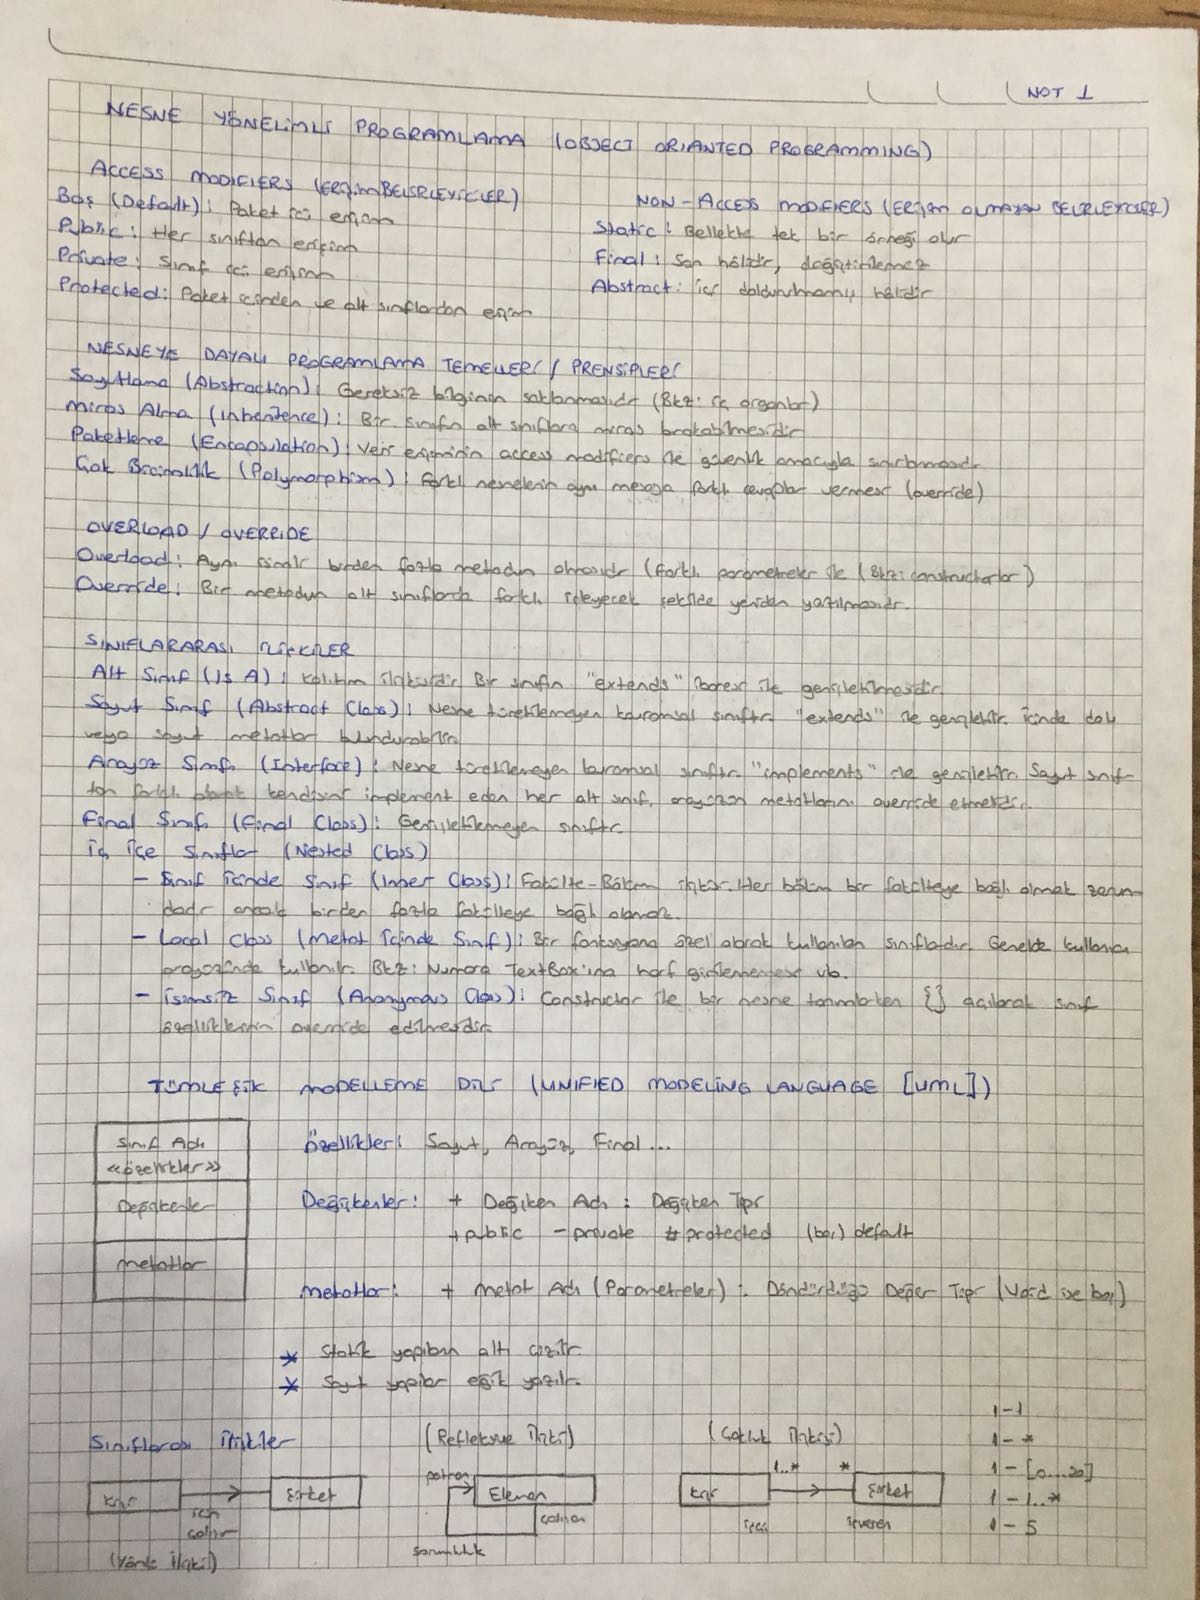 NOT 1
NESNE YÖNELİMLİ PROGRAMLAMA (OBJECT ORIANTED PROGRAMMING)
ACCESS MODIFIERS (ERİŞİM BELİRLEYİCİLER)
Boş (Default): Paket içi erişim
Public: Her sınıftan erişim
Private: Sınıf içi erişim
Protected: Paket içinden ve alt sınıflardan erişim
NON-ACCESS MODIFIERS (ERİŞİM OLMAYAN BELİRLEYİCİLER)
Static: Bellekte tek bir örneği olur
Final: Son hâlidir, değiştirilemez
Abstract: İçi doldurulmamış hâlidir
NESNEYE DAYALI PROGRAMLAMA TEMELLERİ / PRENSİPLERİ
Soyutlama (Abstraction): Gereksiz bilginin saklanmasıdır (Bkz: iç organlar)
Miras Alma (Inheritence): Bir sınıfın alt sınıflara miras bırakabilmesidir
Paketleme (Encapsulation): Veri erişiminin access modifiers ile güvenlik amacıyla sınırlanmasıdır
Çok Biçimlilik (Polymorphism): Farklı nesnelerin aynı mesaja farklı cevaplar vermesi (override)
OVERLOAD / OVERRIDE
Overload: Aynı isimli birden fazla metodun olmasıdır (Farklı parametreler ile (Bkz: constructorlar)
Override: Bir metodun alt sınıflarda farklı işleyecek şekilde yeniden yazılmasıdır.
SINIFLARARASI İLİŞKİLER
Alt Sınıf (Is A): Kalıtım ilişkisidir Bir sınıfın "extends" ibaresi ile genişletilmesidir
Soyut Sınıf (Abstract Class): Nesne türetilemeyen kavramsal sınıftır "extends" ile genişletilir. İçinde dolu
veya soyut metotlar bulundurabilir.
Arayüz Sınıfı (Interface): Nesne türetilemeyen kavramsal sınıftır. "implements" ile genişletilir. Soyut sınıf-
tan farklı olarak kendisini implement eden her alt sınıf, arayüzün metotlarını override etmelidir.
Final Sınıfı (Final Class): Genişletilemeyen sınıftır.
İç İçe Sınıflar (Nested Class)
- Sınıf İçinde Sınıf (Inner Class): Fakülte-Bölüm ilişkisi. Her bölüm bir fakülteye bağlı olmak zorun-
dadır ancak birden fazla fakülteye bağlı olamaz.
- Local Class (Metot İçinde Sınıf): Bir fonksiyona özel olarak kullanılan sınıflardır. Genelde kullanıcı
arayüzünde kullanılır. Bkz: Numara TextBox'ına harf girilememesi vb.
- İsimsiz Sınıf (Anonymous Class): Constructor ile bir nesne tanımlarken {} açılarak sınıf
özelliklerinin override edilmesidir.
TÜMLEŞİK MODELLEME DİLİ (UNIFIED MODELING LANGUAGE [UML])
Sınıf Adı
<<özellikler>>
Değişkenler
Metotlar
Özellikler: Soyut, Arayüz, Final...
Değişkenler: + Değişken Adı : Değişken Tipi
+public -private #protected (boş) default
Metotlar: + Metot Adı (Parametreler) : Döndürdüğü Değer Tipi (Void ise boş)
* Statik yapıların altı çizilir.
* Soyut yapılar eğik yazılır.
Sınıflararası İlişkiler
(Refleksive İlişki)
(Çokluk İlişkisi)
1-1
1-*
1-[0...20]
1-1..*
1-5
Kişi
Şirket
için
çalışır
(Yönlü İlişki)
patron
Eleman
çalışan
sorumluluk
Kişi
1..*
*
Şirket
işçi
işveren